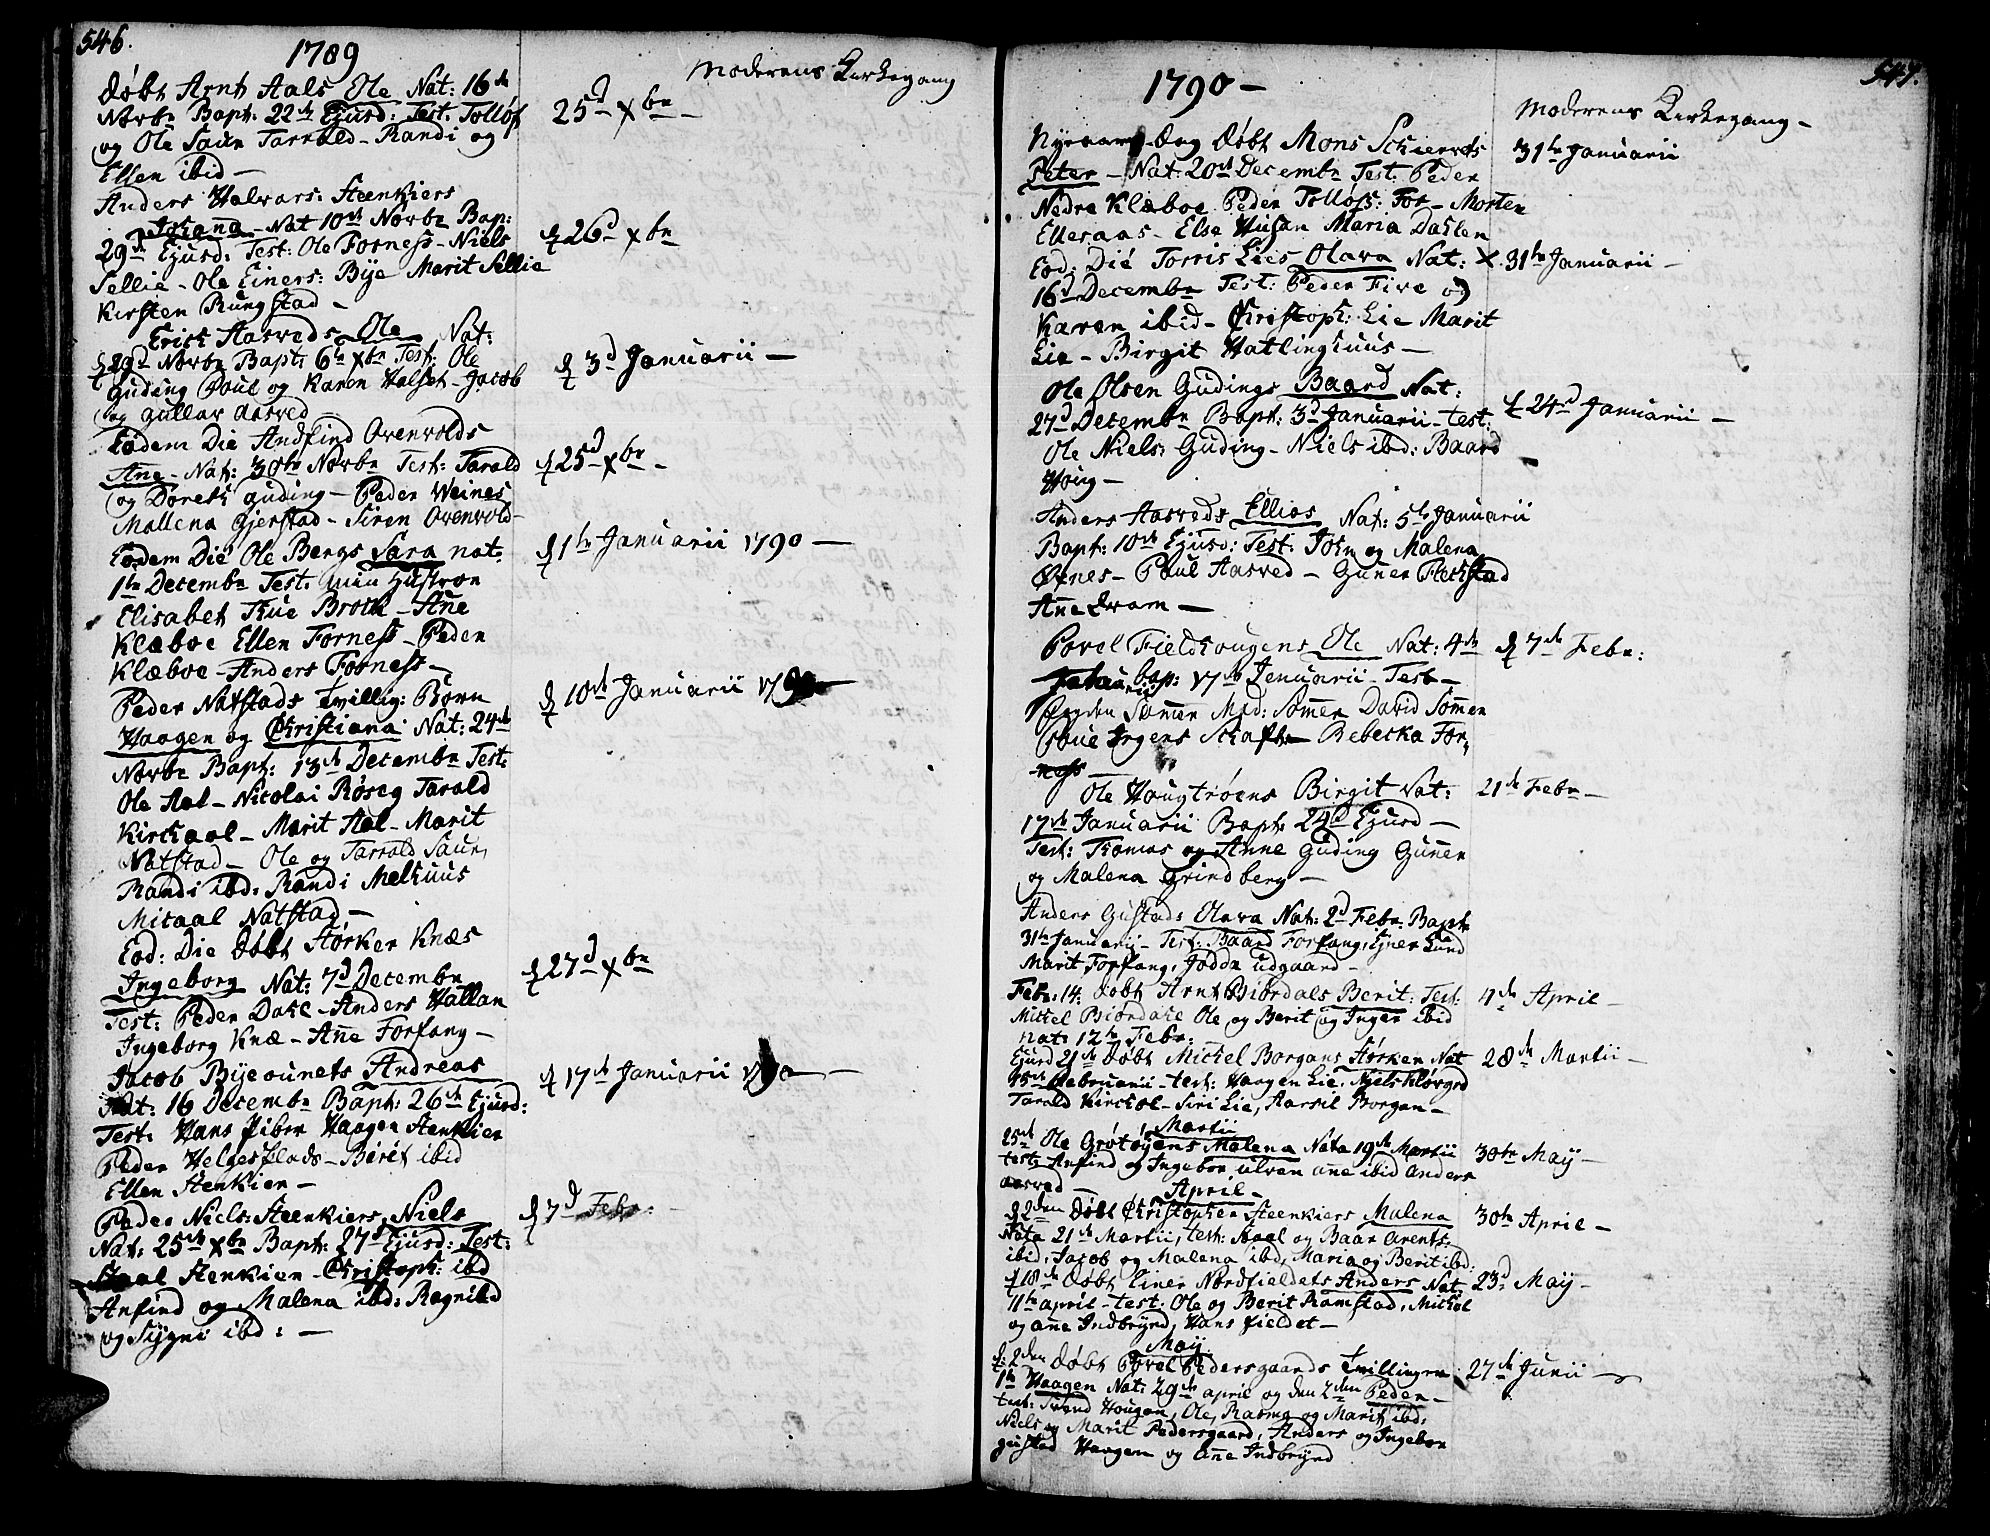 546.
1789
Moderens Kirkegang
døbt Arnt Aals Ole Nat: 16de
Novbr Bapt: 22de Ejusd: Test: Tolløf
og Ole Saur Tarrald - Randi og
Ellen ibid -
25d Xbr -
Anders Halvars: Steenkiers
Johana - Nat 10de Novbr Bap:
29d Ejusd: Test: Ole Forness - Niels
Sellie - Ole Einers: Bye Marit Sellie
Kirsten Rungstad -
26d Xbr
Erich Aasveds Ole Nat:
29d Novbr Bapt: 6te Xbr Test: Ole
Guding Poul og Karen Halset - Jacob
og Gullav Aasved
3d Januarii -
Eodem Die Andfind Ovenvolds
Ane - Nat: 30te Novbr Test: Tarald
og Doreth Guding - Peder Weines
Mallena Gjerstad - Siren Ovenvold -
25d Xbr -
Eodem Die Ole Bergs Sara nat:
1te Decembr Test: min Hustroe
Elisabet Thue Broch - Ane
Klæboe Ellen Forness - Peder
Klæboe - Anders Forness -
1te Januarii 1790 -
Peder Natstads Tvilling: Børn
Haagen og Christiana Nat: 24de
Novbr Bapt: 13de Decembr Test:
Ole Aal - Nicolai Røseg Tarald
Kirchaal - Marit Aal - Marit
Natstad - Ole og Tarrald Saur,
Randi ibd: Randi Melhuus
Micaal Natstad -
10de Januarii 1790
Eod: Die døbt Størker Knæs
Ingeborg Nat: 7d Decembr
Test: Peder Dahl - Anders Hallan
Ingeborg Knæ - Ane Forfang -
27d Xbr
Jacob Byeaunets Andreas
Nat: 16 Decembr Bapt: 26de Ejusd:
Test: Hans Fiber Haagen Stenkier
Peder Helgesplads - Berit ibid
Ellen Stenkier -
17de Januarii 1790 -
Peder Niels: Steenkiers Niels
Nat: 25de Xbr Bapt: 27d Ejusd: Test:
Staal Stenkier - Christoph: ibd
Anfind og Malena ibd: Ragnild
og Sygni ibd: -
7d Febr: -
547.
1790 -
Moderens Kirkegang -
Nyeaars-Dag døbt Mons Schierets
Peter - Nat: 20de Decembr Test: Peder
Nedre Klæboe Peder Tolløfs: For - Morten
Elleraas - Else Husan Maria Dahlen
31te Januarii
Eod: Die Torris Lies Olava Nat:
16d Decembr Test: Peder Five og
Karen ibid - Christoph: Lie Marit
Lie - Birgit Hatlinghuus -
X. 31te Januarii -
Ole Olsen Gudings Baard Nat:
27d Decembr Bapt: 3d Januarii - test:
Ole Niels: Guding - Niels ibd: Baard
Houg -
24d Januarii -
Anders Aasveds Ellias Nat: 5te Januarii
Bapt: 10de Ejusd: Test: John og Malena
Øxnes - Paul Aasved - Guner Flechstad
Ane Dram -
Povel Fieldhougens Ole Nat: 4de
bap: 17de Januarii - Test -
Somer Mad: Somer David Somer
Irgens Schaft Rebecka For-
ness -
7de Febr:
Ole Hougtrøens Birgit Nat:
17de Januarii Bapt: 24d Ejusd -
Test: Thomas og Anne Guding Guner
og Malena Grindberg -
21de Febr -
Anders Gustads Olava Nat: 2d Febr: Bapt
31te Januarij - Test: Baard Forfang, Ejner Lund
Marit Forfang, Jødde Udgaard -
Febr: 14. døbt Arnt Biørdals Berit: Test:
Mickel Biørdahl Ole og Berit og Inger ibid
nat: 12te Febr:
4de April -
Ejusd 21de døbt Mickel Borgans Størker Nat
15de Februarii - test: Haagen Lie, Niels Kløvged
Tarald Kirchol - Siri Lie, Aarsil Borgan -
28de Martii -
Martii
25de Ole Grøtøyens Malena Nata 19de Martii
test: Anfind og Ingebor Ulven Ane ibid Anders
Aasved -
30te Maij -
April -
2den døbt Christopher Steenkiers Malena
Nata 21de Martii, test: Staal og Baar Arents:
ibid, Jacob og Malena ibd, Maria og Berit ibd:
30te April -
18de døbt Einer Nordfieldets Anders Nat:
11te april - test: Ole og Berit Ramstad, Mickel
og Ane Indbryd, Hans Fieldet -
23d Maij -
Maij.
2den døbt Povel Pedersgaards Tvillinger
1te Haagen Nat: 29de april og den 2den Peder -
test: Trond Hougan, Ole, Rasmg og Marit ibd:
Niels og Marit Pedersgaard, Anders og Ingebor
Gustad Haagen og Ane Indbryd
27de Junii -